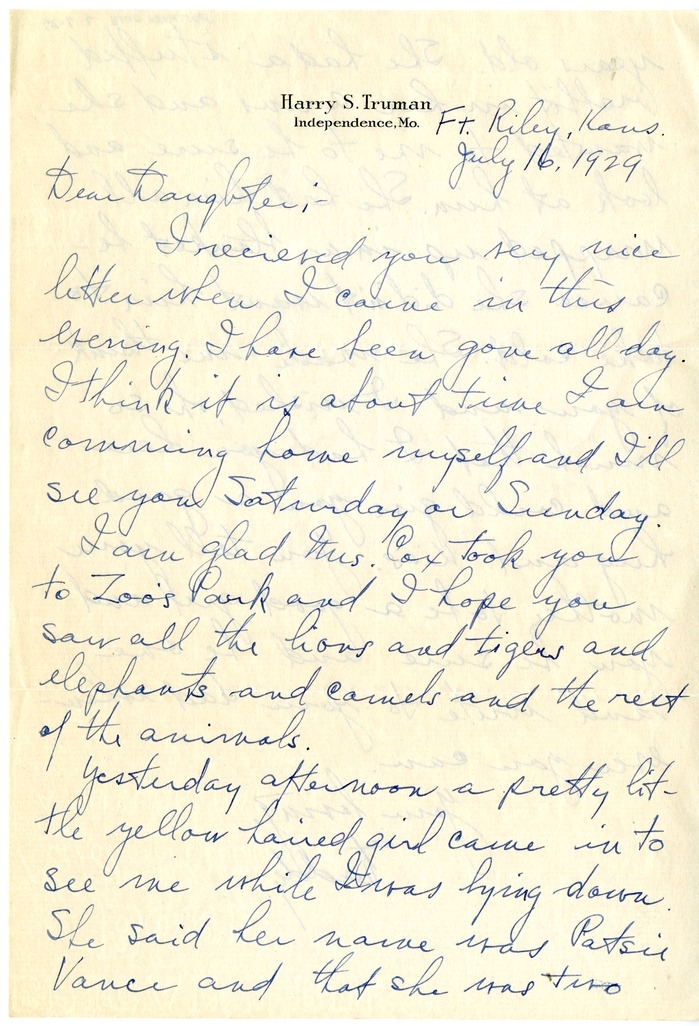 Harry S. Truman
Independence, Mo.
Ft. Riley, Kans.
July 16, 1929
Dear Daughter;-
I recieved you very nice
letter when I came in this
evening. I have been gone all day.
I think it is about time I am
comming home myself and I'll
see you Saturday or Sunday.
I am glad Mrs. Cox took you
to Zoo's Park and I hope you
saw all the lions and tigers and
elephants and camels and the rest
of the animals.
Yesterday afternoon a pretty lit-
tle yellow haired girl came in to
see me while I was lying down.
She said her name was Patsie
Vance and that she was two